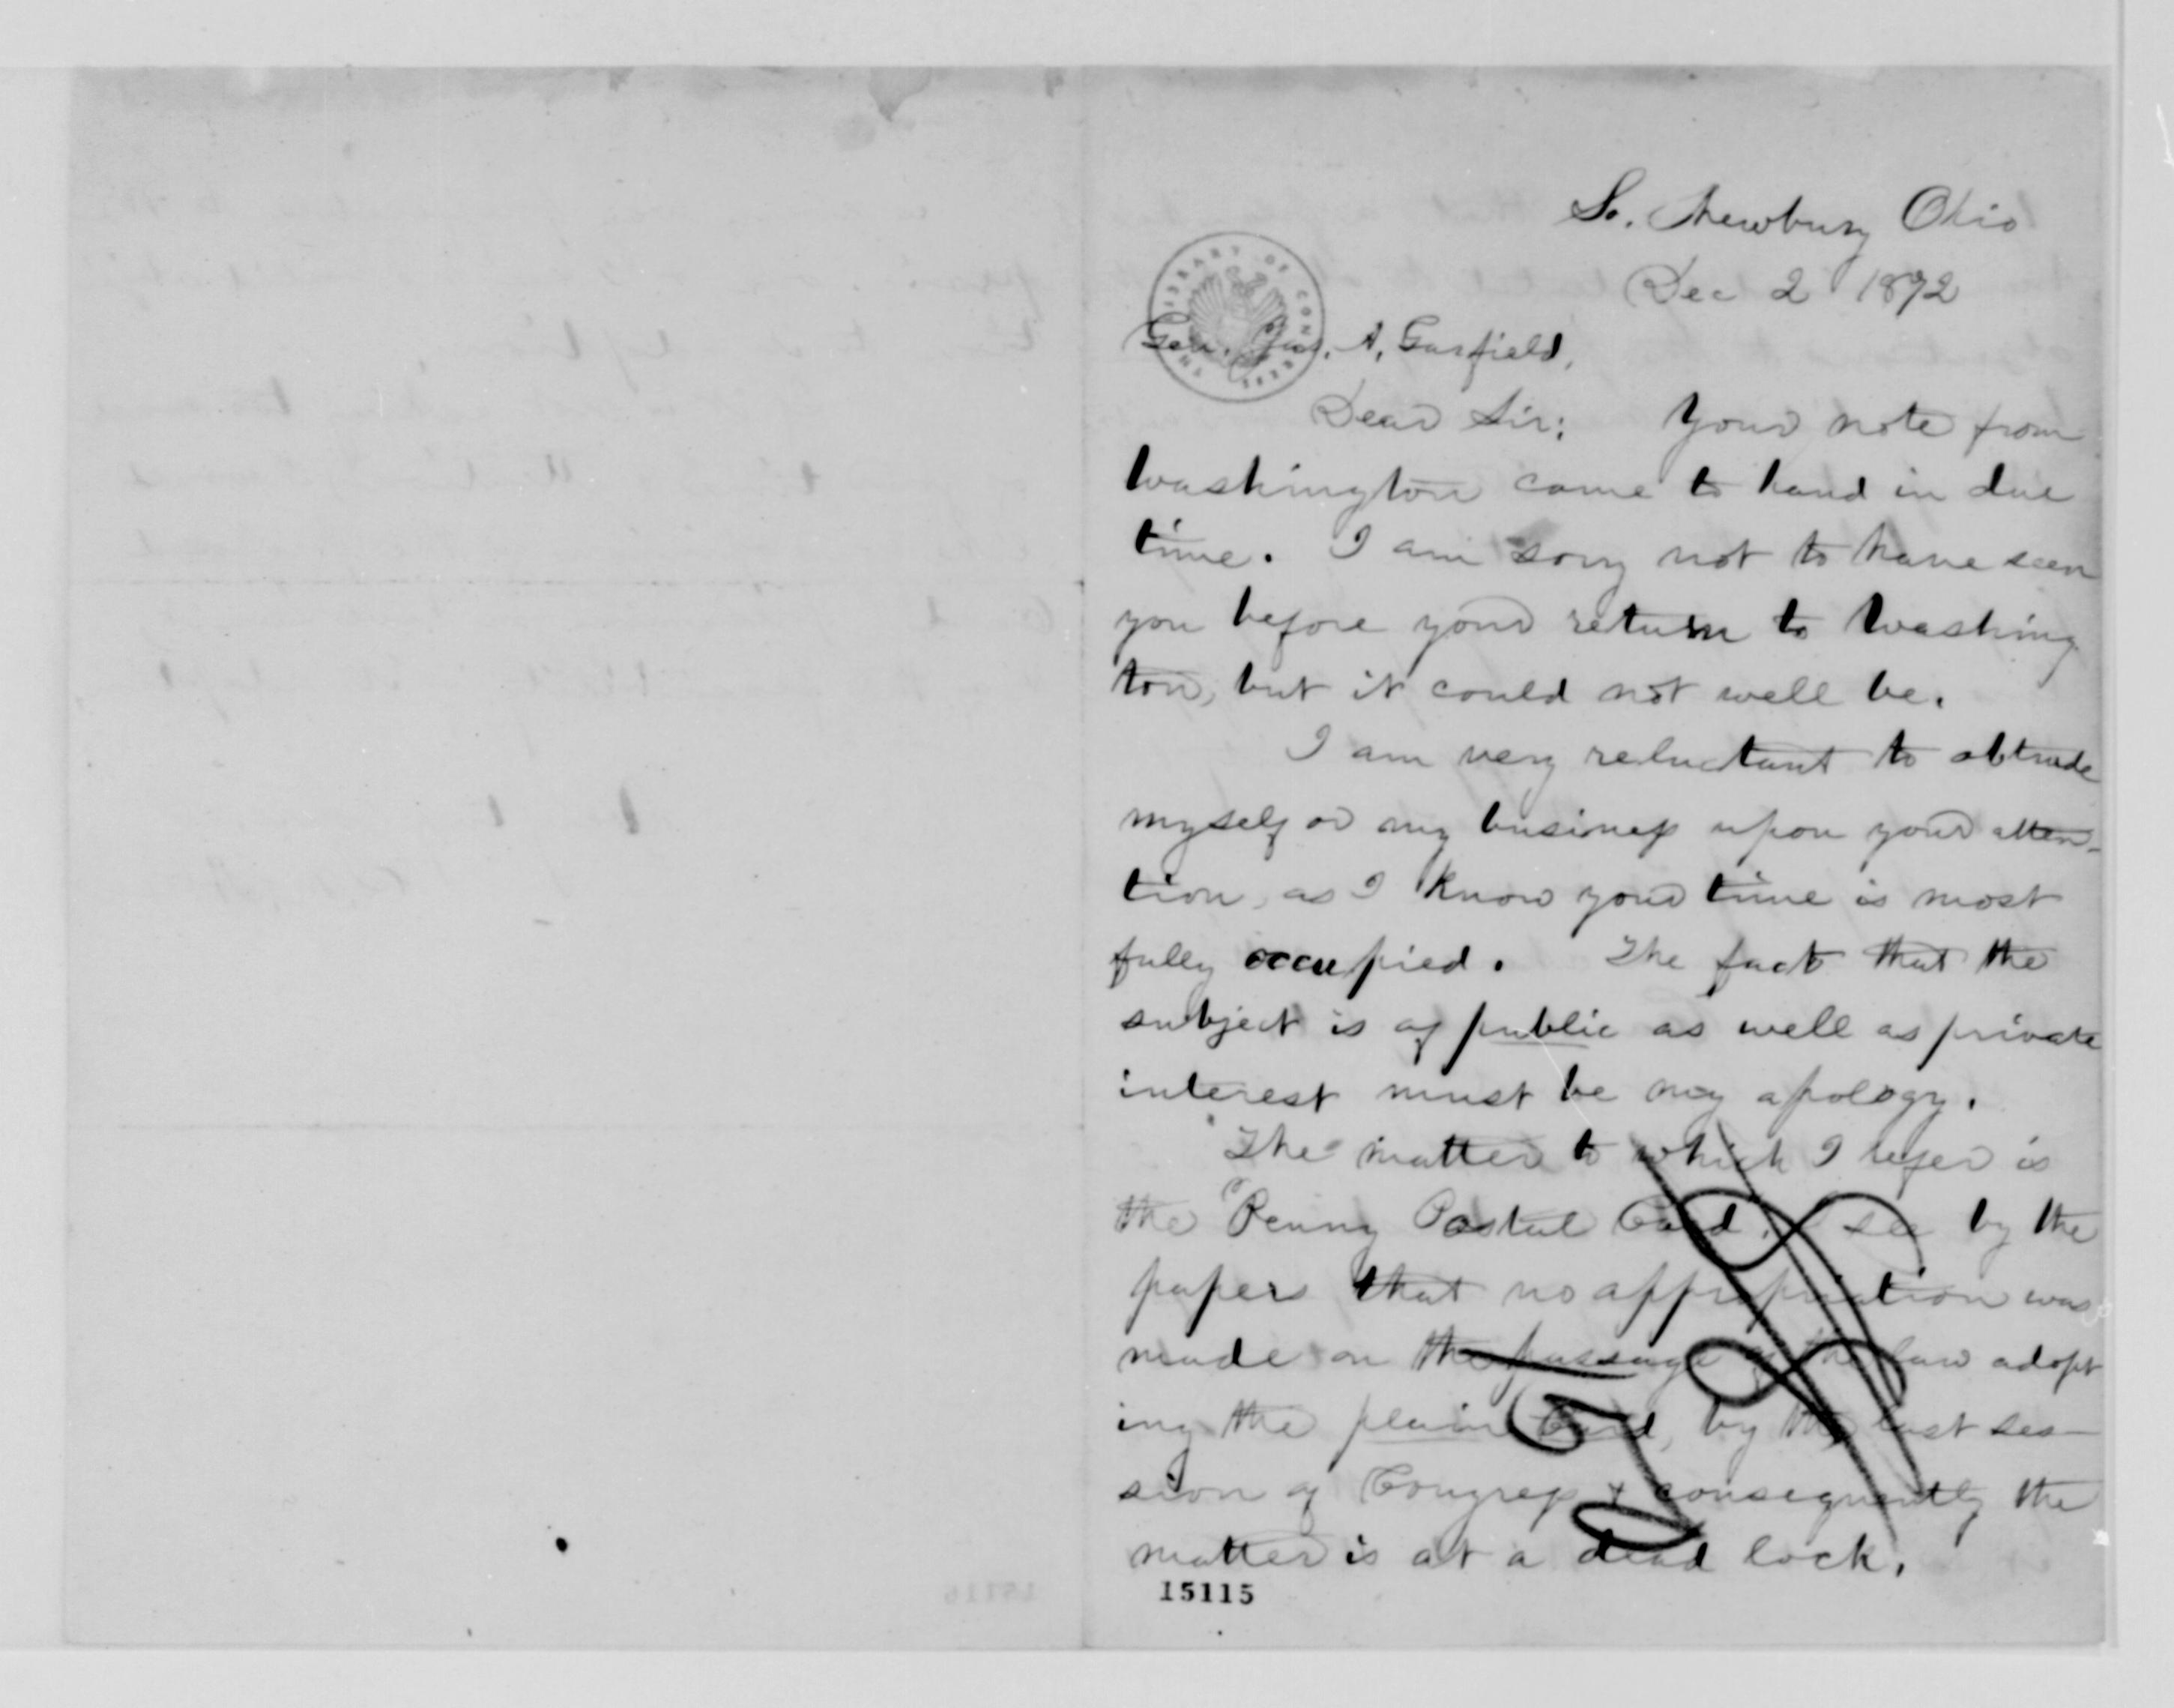 So. Newbury Ohio
Dec 2 1872
THE LIBRARY OF CONGRESS
Gen. Jas. A. Garfield,
Dear Sir: Your note from
Washington came to hand in due
time. I am sorry not to have seen
you before your return to Washing
ton, but it could not well be.
I am very reluctant to obtrude
myself or my business upon your atten-
tion, as I know your time is most
fully occupied. The fact that the
subject is of public as well as private
interest must be my apology.
The matter to which I refer is
the "Penny Postal Card. I see by the
papers that no appropriation was
made on the passage of the law adopt
ing the plain Card, by the last ses-
sion of Congress & consequently the
matter is at a dead lock.
15115